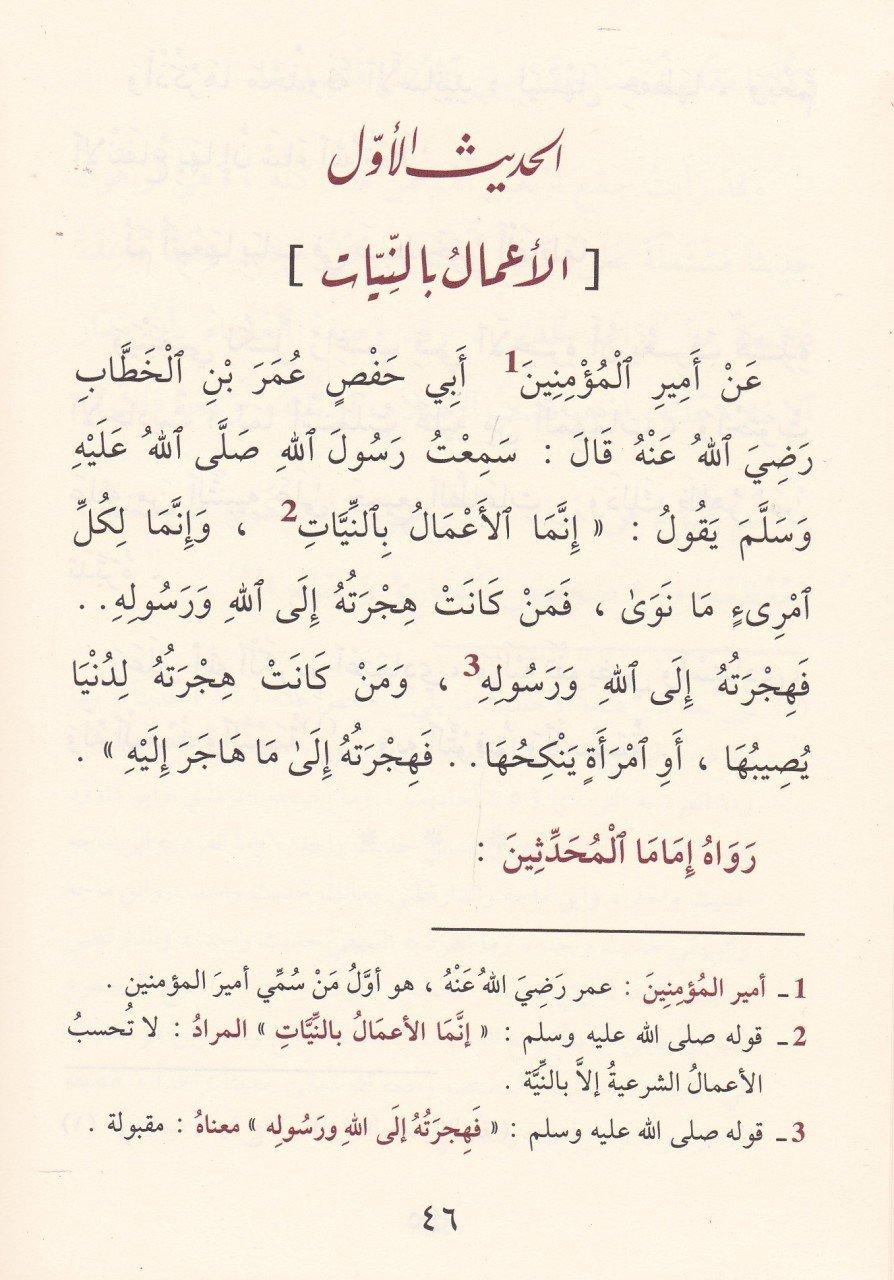 الحديث الأوّل
[ الأعمالُ بالنِّيّات ]
عَنْ أَمِيرِ ٱلْمُؤْمِنِينَ1 أَبِي حَفْصٍ عُمَرَ بْنِ ٱلْخَطَّابِ
رَضِيَ ٱللهُ عَنْهُ قَالَ : سَمِعْتُ رَسُولَ ٱللهِ صَلَّى ٱللهُ عَلَيْهِ
وَسَلَّمَ يَقُولُ : « إِنَّمَا ٱلأَعْمَالُ بِٱلنِّيَّاتِ2 ، وَإِنَّمَا لِكُلِّ
ٱمْرِىءٍ مَا نَوَىٰ ، فَمَنْ كَانَتْ هِجْرَتُهُ إِلَى ٱللهِ وَرَسُولِهِ..
فَهِجْرَتُهُ إِلَى ٱللهِ وَرَسُولِهِ3 ، وَمَنْ كَانَتْ هِجْرَتُهُ لِدُنْيَا
يُصِيبُهَا ، أَوِ ٱمْرَأَةٍ يَنْكِحُهَا.. فَهِجْرَتُهُ إِلَىٰ مَا هَاجَرَ إِلَيْهِ » .
رَوَاهُ إِمَامَا ٱلْمُحَدِّثِينَ :
1ـ أمير المُؤمِنِينَ : عمر رَضِيَ اللهُ عَنْهُ ، هو أوَّلُ مَنْ سُمِّي أميرَ المؤمنين .
2ـ قوله صلى الله عليه وسلم : « إنَّمَا الأعمَالُ بالنِّيَّاتِ » المرادُ : لا تُحسبُ
الأعمالُ الشرعيةُ إلاَّ بالنِّيَّة .
3ـ قوله صلى الله عليه وسلم : « فَهِجرَتُهُ إلَى اللهِ ورَسُولِه » معناهُ : مقبولة .
٤٦